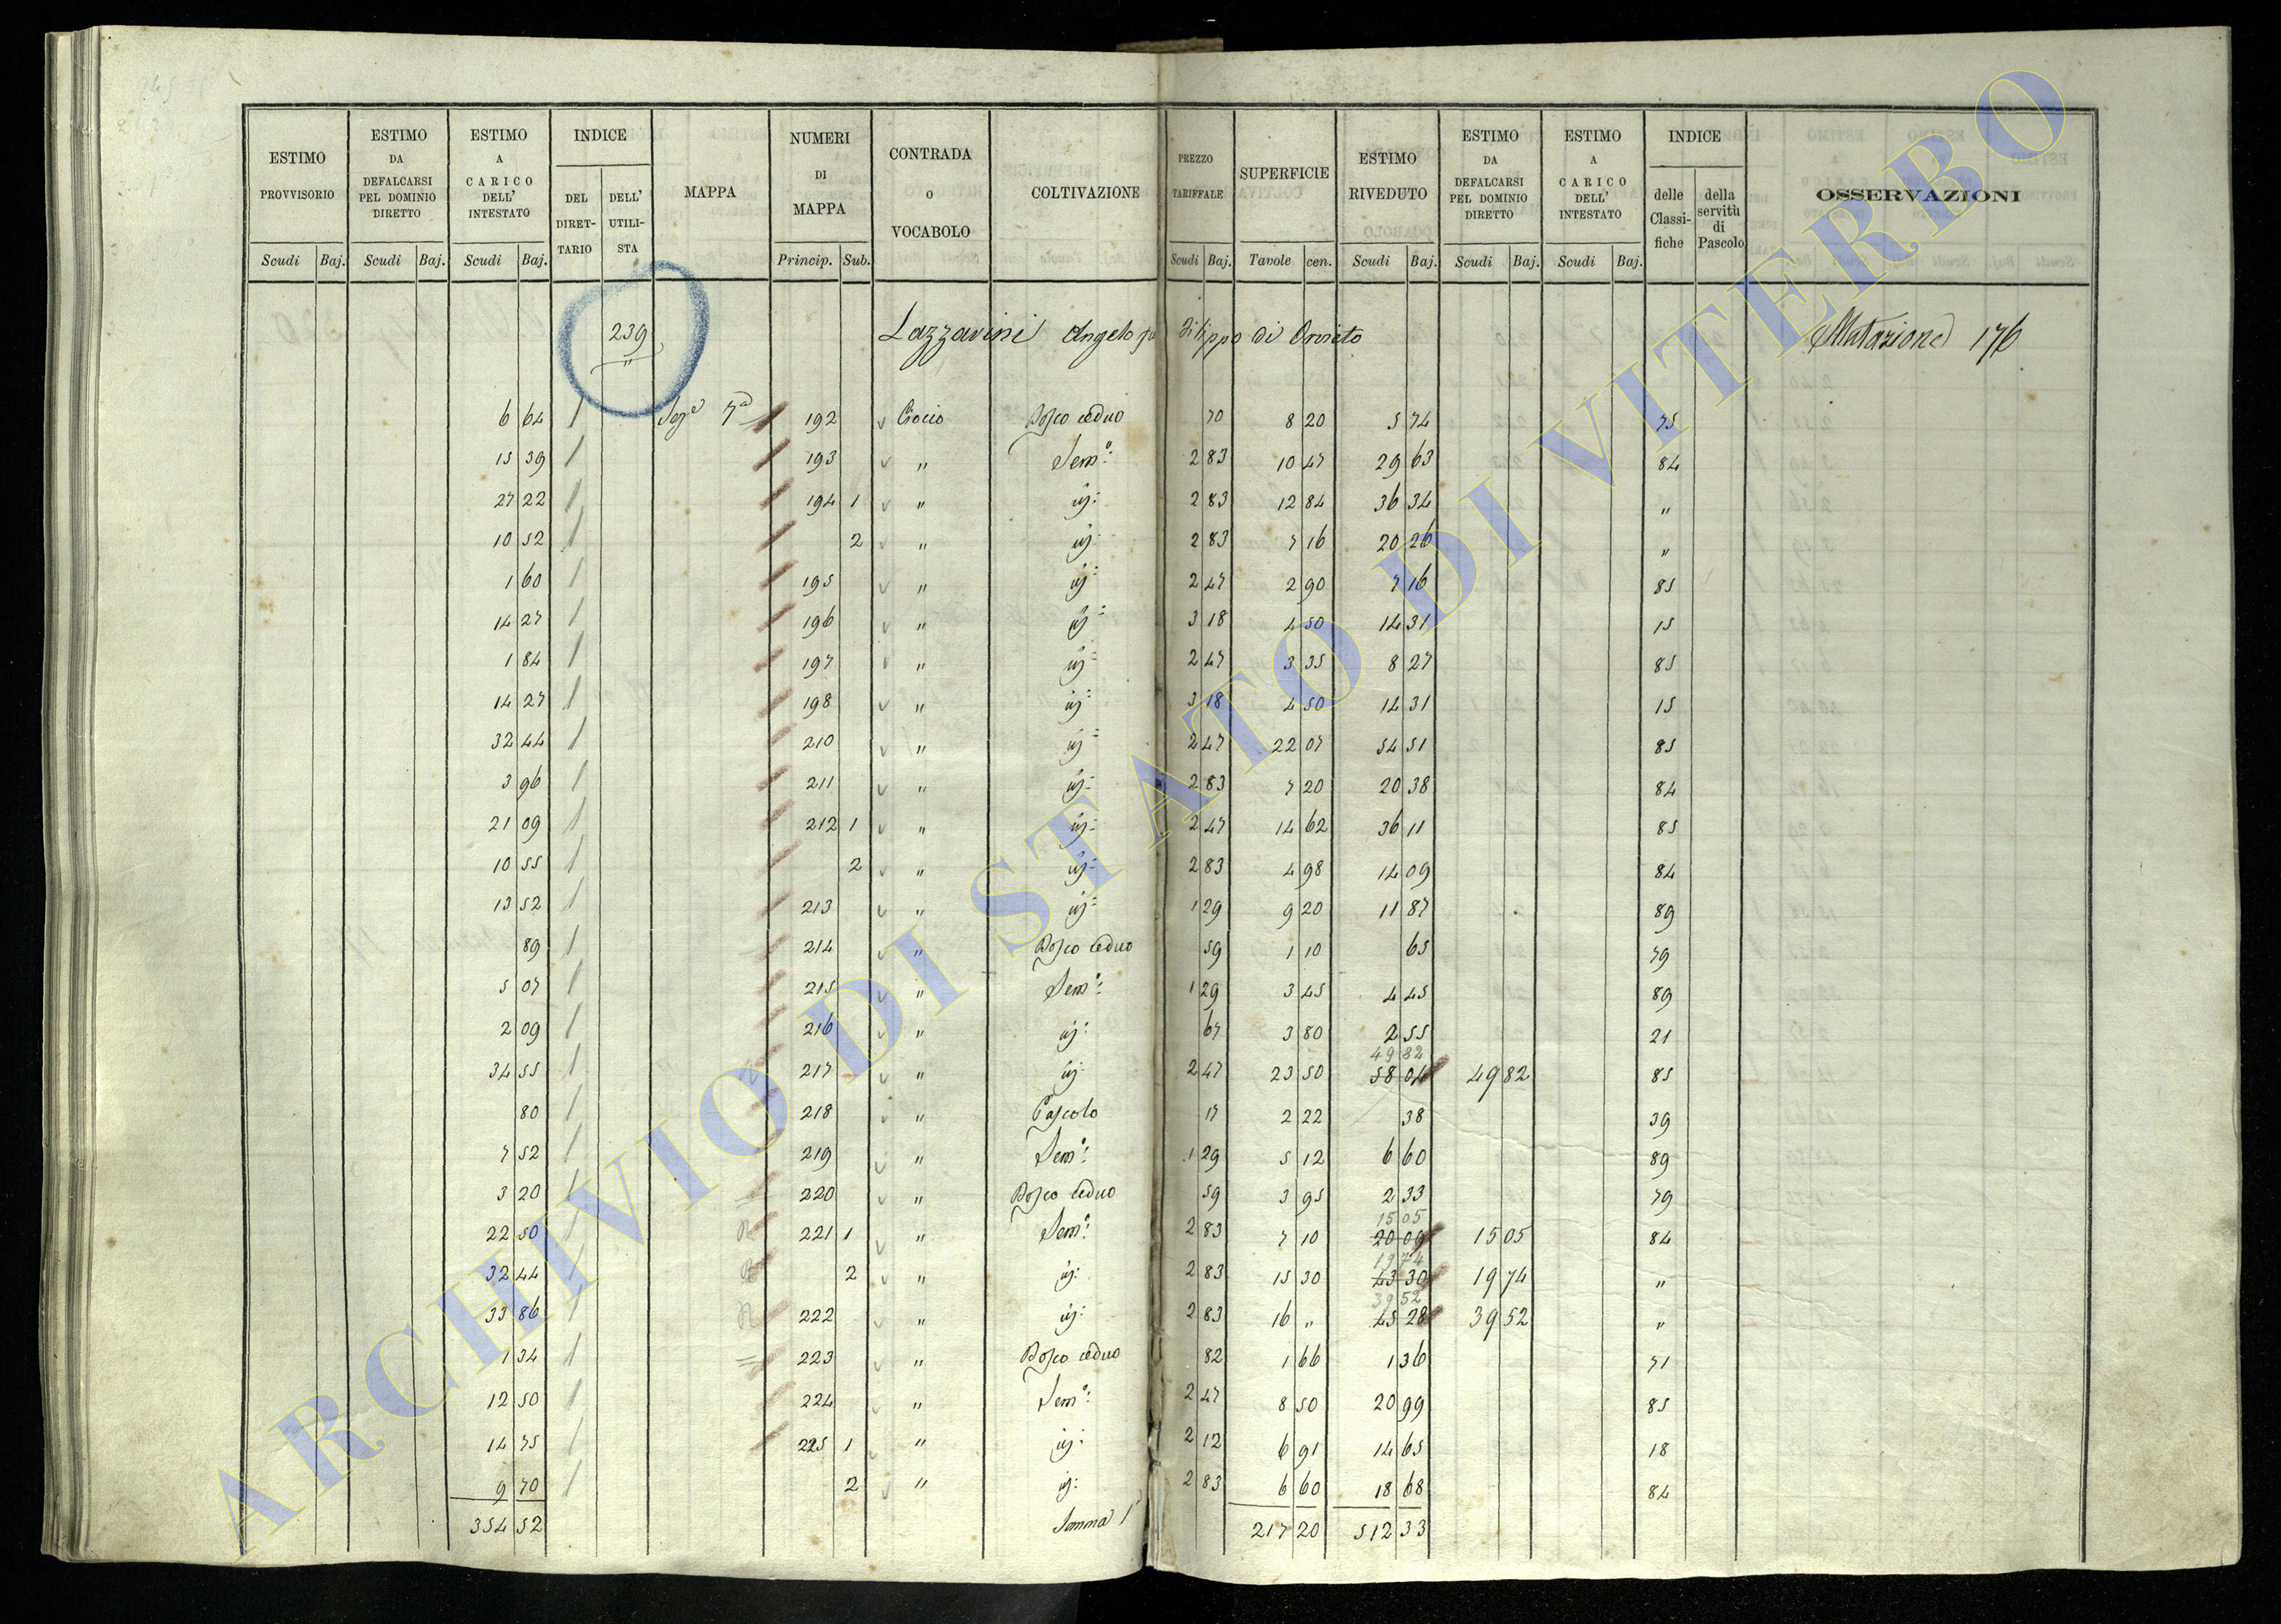 ESTIMO PROVVISORIO | ESTIMO DA DEFALCARSI PEL DOMINIO DIRETTO | ESTIMO A CARICO DELL' INTESTATO | INDICE DEL DIRET-TARIO | DELL' UTILI-STA | MAPPA | NUMERI DI MAPPA | CONTRADA o VOCABOLO | COLTIVAZIONE | PREZZO TARIFFALE | SUPERFICIE | ESTIMO RIVEDUTO | ESTIMO DA DEFALCARSI PEL DOMINIO DIRETTO | ESTIMO A CARICO DELL' INTESTATO | INDICE delle Classi-fiche | della servitù di Pascolo | OSSERVAZIONI
Scudi Baj. Scudi Baj. Scudi Baj. Princip. Sub. Scudi Baj. Tavole cen. Scudi Baj. Scudi Baj. Scudi Baj.
239 Lazzarini Angelo fu Filippo di Orvieto Mutazione 176
"
6 64 1 Sez.e 7a 192 Ciocio Bosco ceduo 70 8 20 5 74 75
15 39 1 193 " Sem.o: 2 83 10 47 29 63 84
27 22 1 194 1 " id: 2 83 12 84 36 34 "
10 52 1 2 " id: 2 83 7 16 20 26 "
1 60 1 195 " id: 2 47 2 90 7 16 85
14 27 1 196 " id: 3 18 4 50 14 31 15
1 84 1 197 " id: 2 47 3 35 8 27 85
14 27 1 198 " id: 3 18 4 50 14 31 15
32 44 1 210 " id: 2 47 22 07 54 51 85
3 96 1 211 " id: 2 83 7 20 20 38 84
21 09 1 212 1 " id: 2 47 14 62 36 11 85
10 55 1 2 " id: 2 83 4 98 14 09 84
13 52 1 213 " id: 1 29 9 20 11 87 89
89 1 214 " Bosco ceduo 59 1 10 65 79
5 07 1 215 " Sem.o: 1 29 3 45 4 45 89
2 09 1 216 " id: 67 3 80 2 55 21
49 82
34 55 1 217 " id: 2 47 23 50 58 04 49 82 85
80 1 218 " Pascolo 17 2 22 38 39
7 52 1 219 " Sem.o: 1 29 5 12 6 60 89
3 20 1 220 " Bosco ceduo 59 3 95 2 33 79
15 05
22 50 1 R 221 1 " Sem.o: 2 83 7 10 20 09 15 05 84
19 74
32 44 1 R 2 " id: 2 83 15 30 43 30 19 74 "
39 52
33 86 1 R 222 " id: 2 83 16 " 45 28 39 52 "
1 34 1 223 " Bosco ceduo 82 1 66 1 36 71
12 50 1 224 " Sem.o: 2 47 8 50 20 99 85
14 75 1 225 1 " id: 2 12 6 91 14 65 18
9 70 1 2 " id: 2 83 6 60 18 68 84
354 52 Somma 217 20 512 33
ARCHIVIO DI STATO DI VITERBO